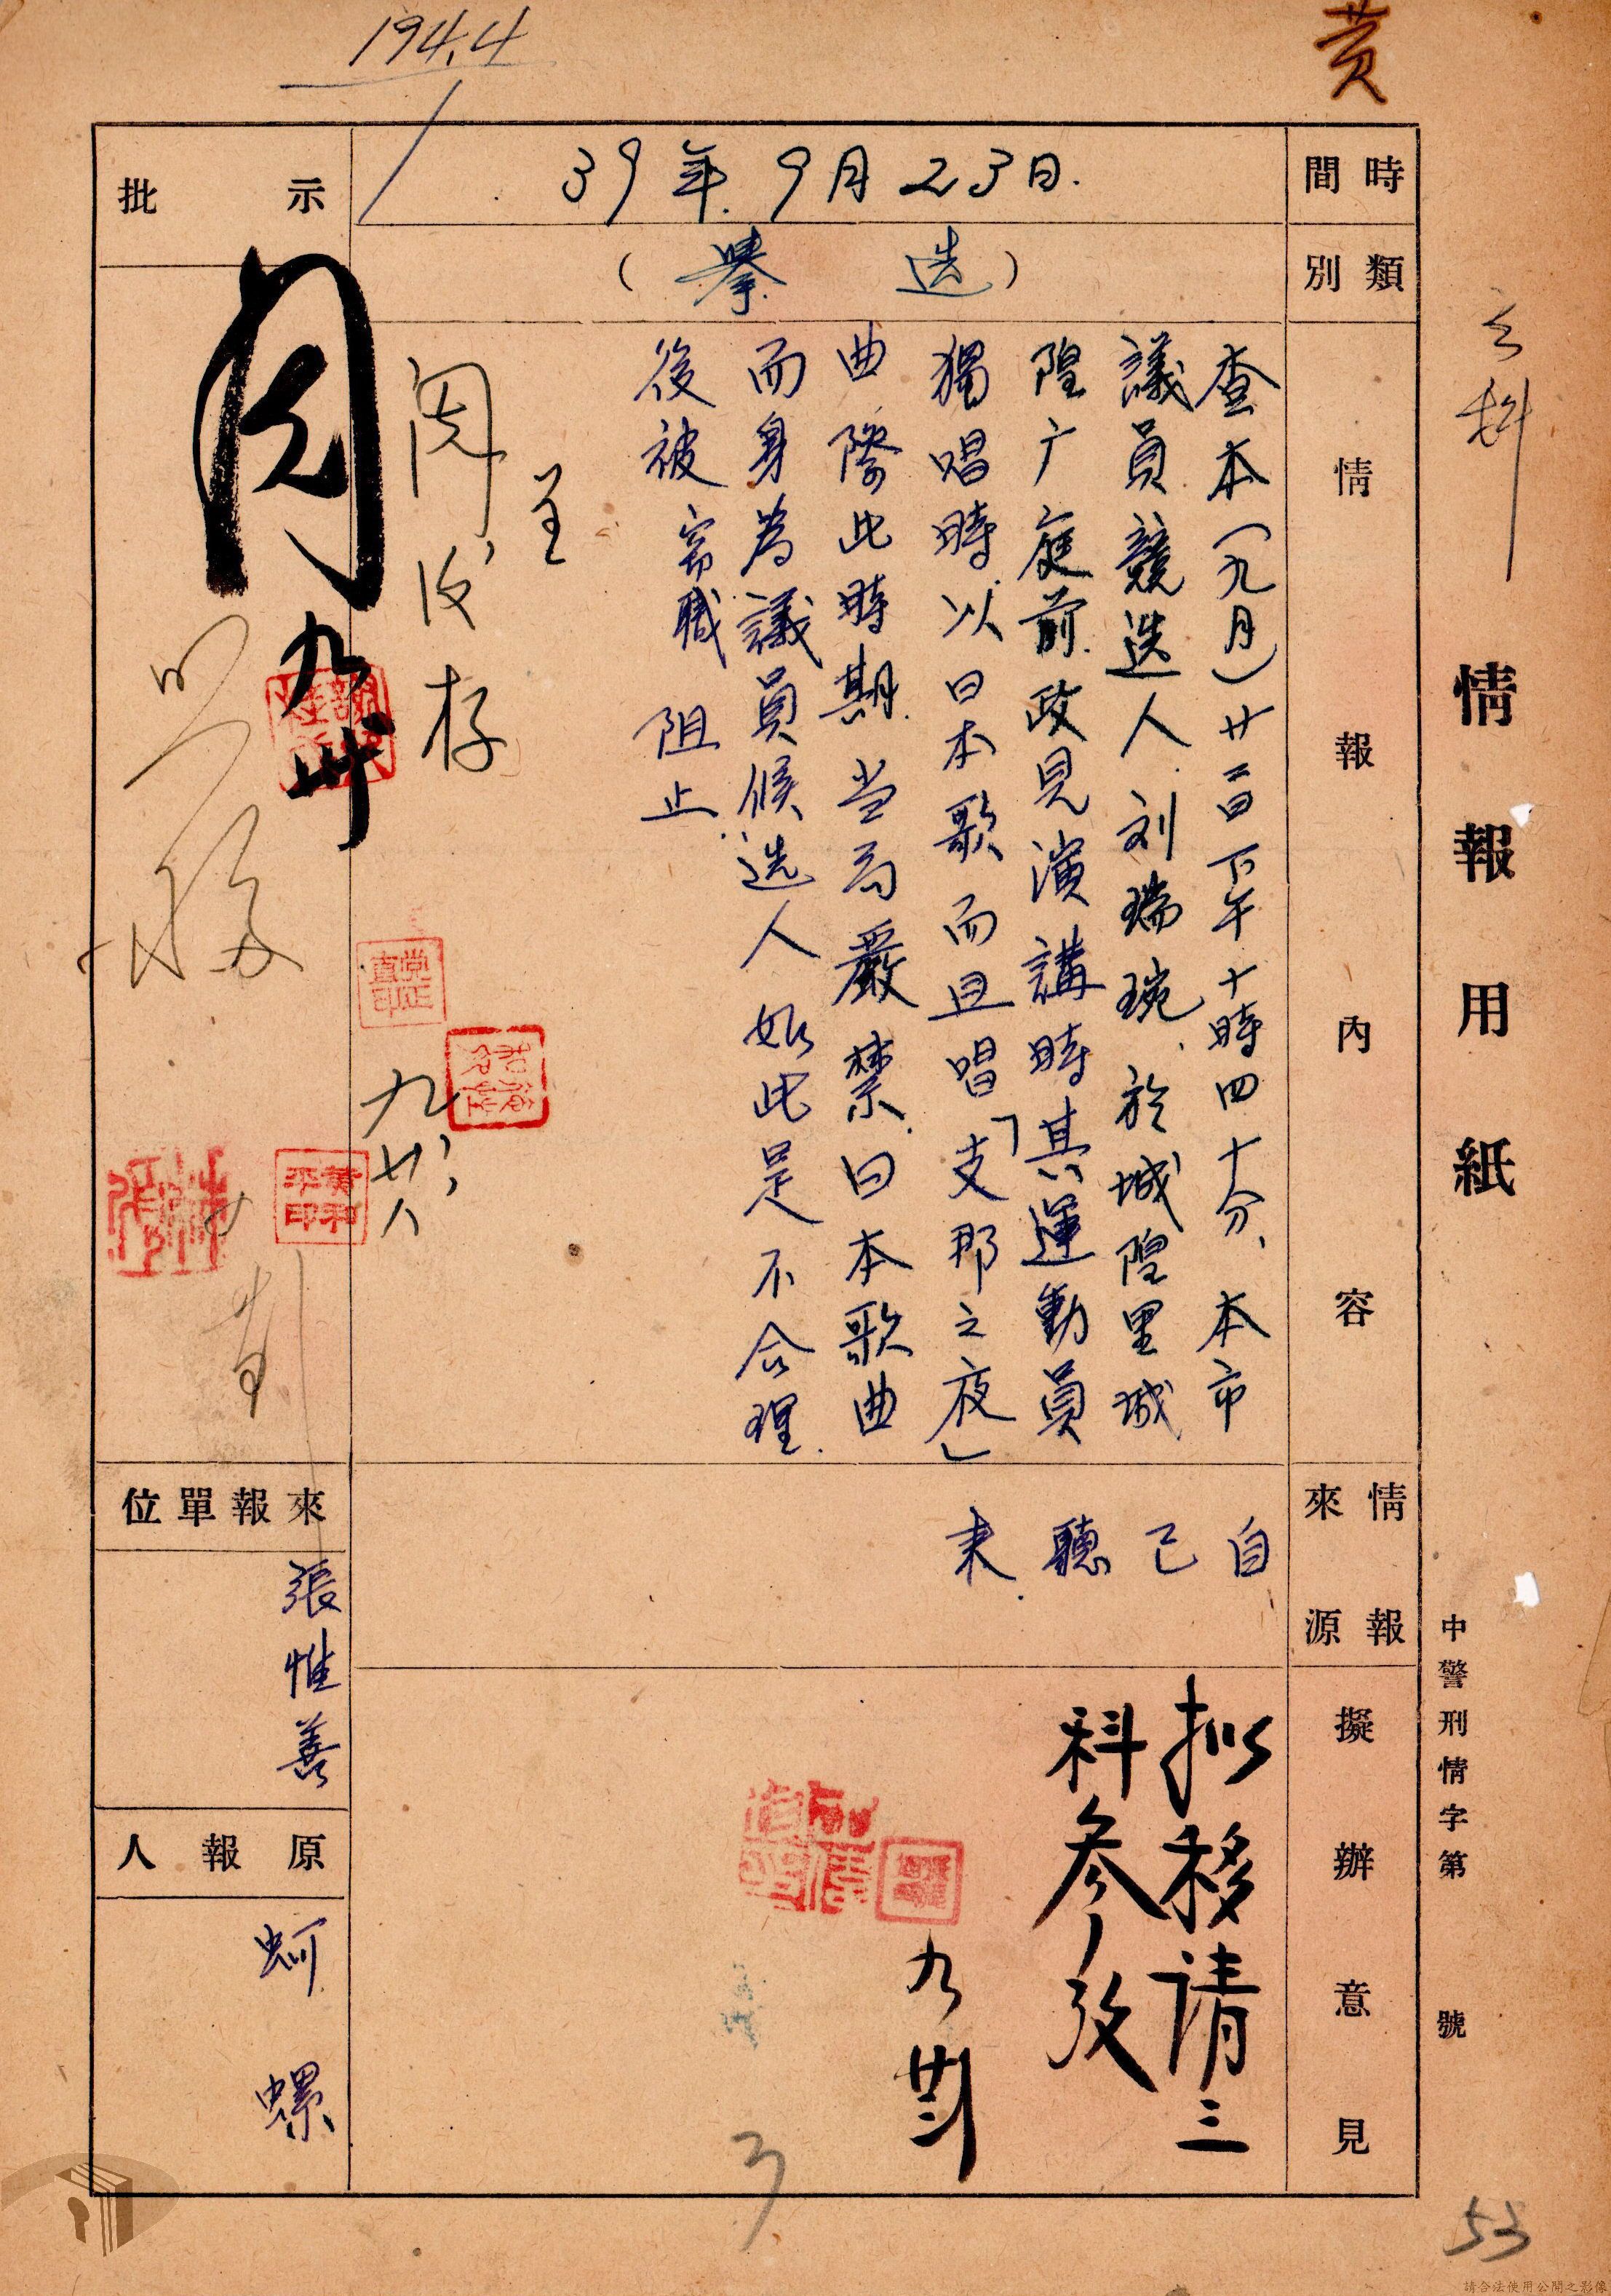 194.4
黄
情報用紙
中警刑情字第　　號
時間
39年9月23日.
類別
(選舉)
情報內容
查本(九月)廿二日下午十時四十分、本市
議員競选人刘瑞琬、於城隍里城
隍广庭前政見演講時其運動員
獨唱時以日本歌而且唱「支那之夜」
曲際此時期当局嚴禁日本歌曲
而身為議員候选人如此是不合理
後被 職阻止
情報來源
自己聽來
擬辦意見
拟移请三
科参攷
九廿三
批示
閱
九廿
閱後存
九廿八
黃和平印
來報單位
張惟善
原報人
蚵螺
3
53
請合法使用公開之影像